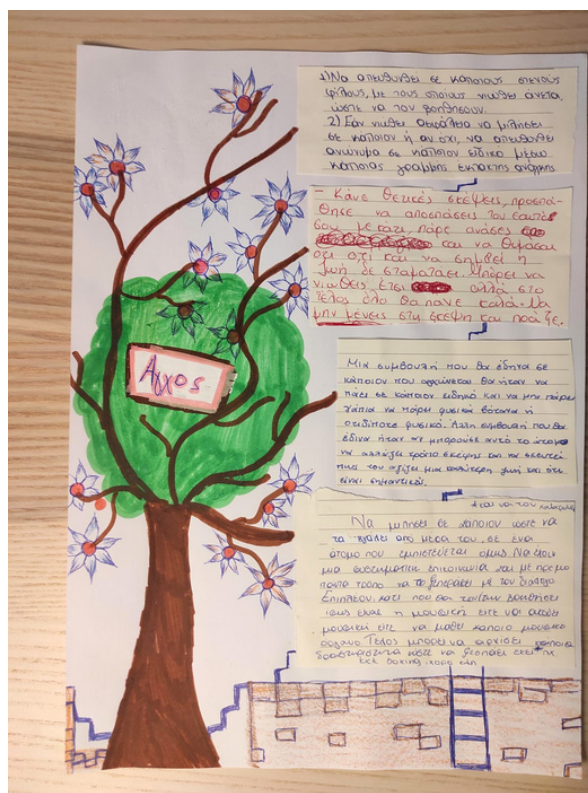 Άγχος
1) Να απευθυνθεί σε κάποιους στενούς
φίλους, με τους οποίους νιώθει άνετα,
ώστε να τον βοηθήσουν.
2) Εάν νιώθει ασφάλεια να μιλήσει
σε κάποιον ή αν όχι, να απευθυνθεί
ανώνυμα σε κάποιον ειδικό μέσω
κάποιας γραμμής έκτακτης ανάγκης
- Κάνε θετικές σκέψεις, προσπά-
θησε να αποσπάσεις τον εαυτό
σου με κάτι, πάρε ανάσες
και να θυμάσαι
ότι ότι και να συμβεί η
ζωή δε σταματάει. Μπορεί να
νιώθεις έτσι αλλά στο
τέλος όλα θα πάνε καλά. Να
μην μένεις στη σκέψη και πράξε.
Μια συμβουλή που θα έδινα σε
κάποιον που αγχώνεται θα ήταν να
πάει σε κάποιον ειδικό και να μην πάρει
χάπια να πάρει φυσικά βότανα ή
οτιδήποτε φυσικό. Άλλη συμβουλή που θα
έδινα ήταν αν μπορούσε αυτό το άτομο
να αλλάξει τρόπο σκέψης και να σκευτεί
πως του αξίζει μια καλύτερη ζωή και ότι
είναι σημαντικός.
Να μιλήσει σε κάποιον ώστε να
τα βγάλει από μέσα του, σε ένα
άτομο που εμπιστεύεται όμως. Να έχουν
μια ουσιαστική επικοινωνία και με
τρόπο να το ξεπεράσει με τον
Επιπλέον, κάτι που θα τον/την βοηθήσει
ίσως είναι η μουσική είτε να ακούει
μουσική είτε να μάθει κάποιο μουσικό
όργανο Τέλος μπορεί να αρχίσει κάποια
δραστηριότητα ώστε να ξεσπάσει εκεί πχ
kick boxing χορό κλπ